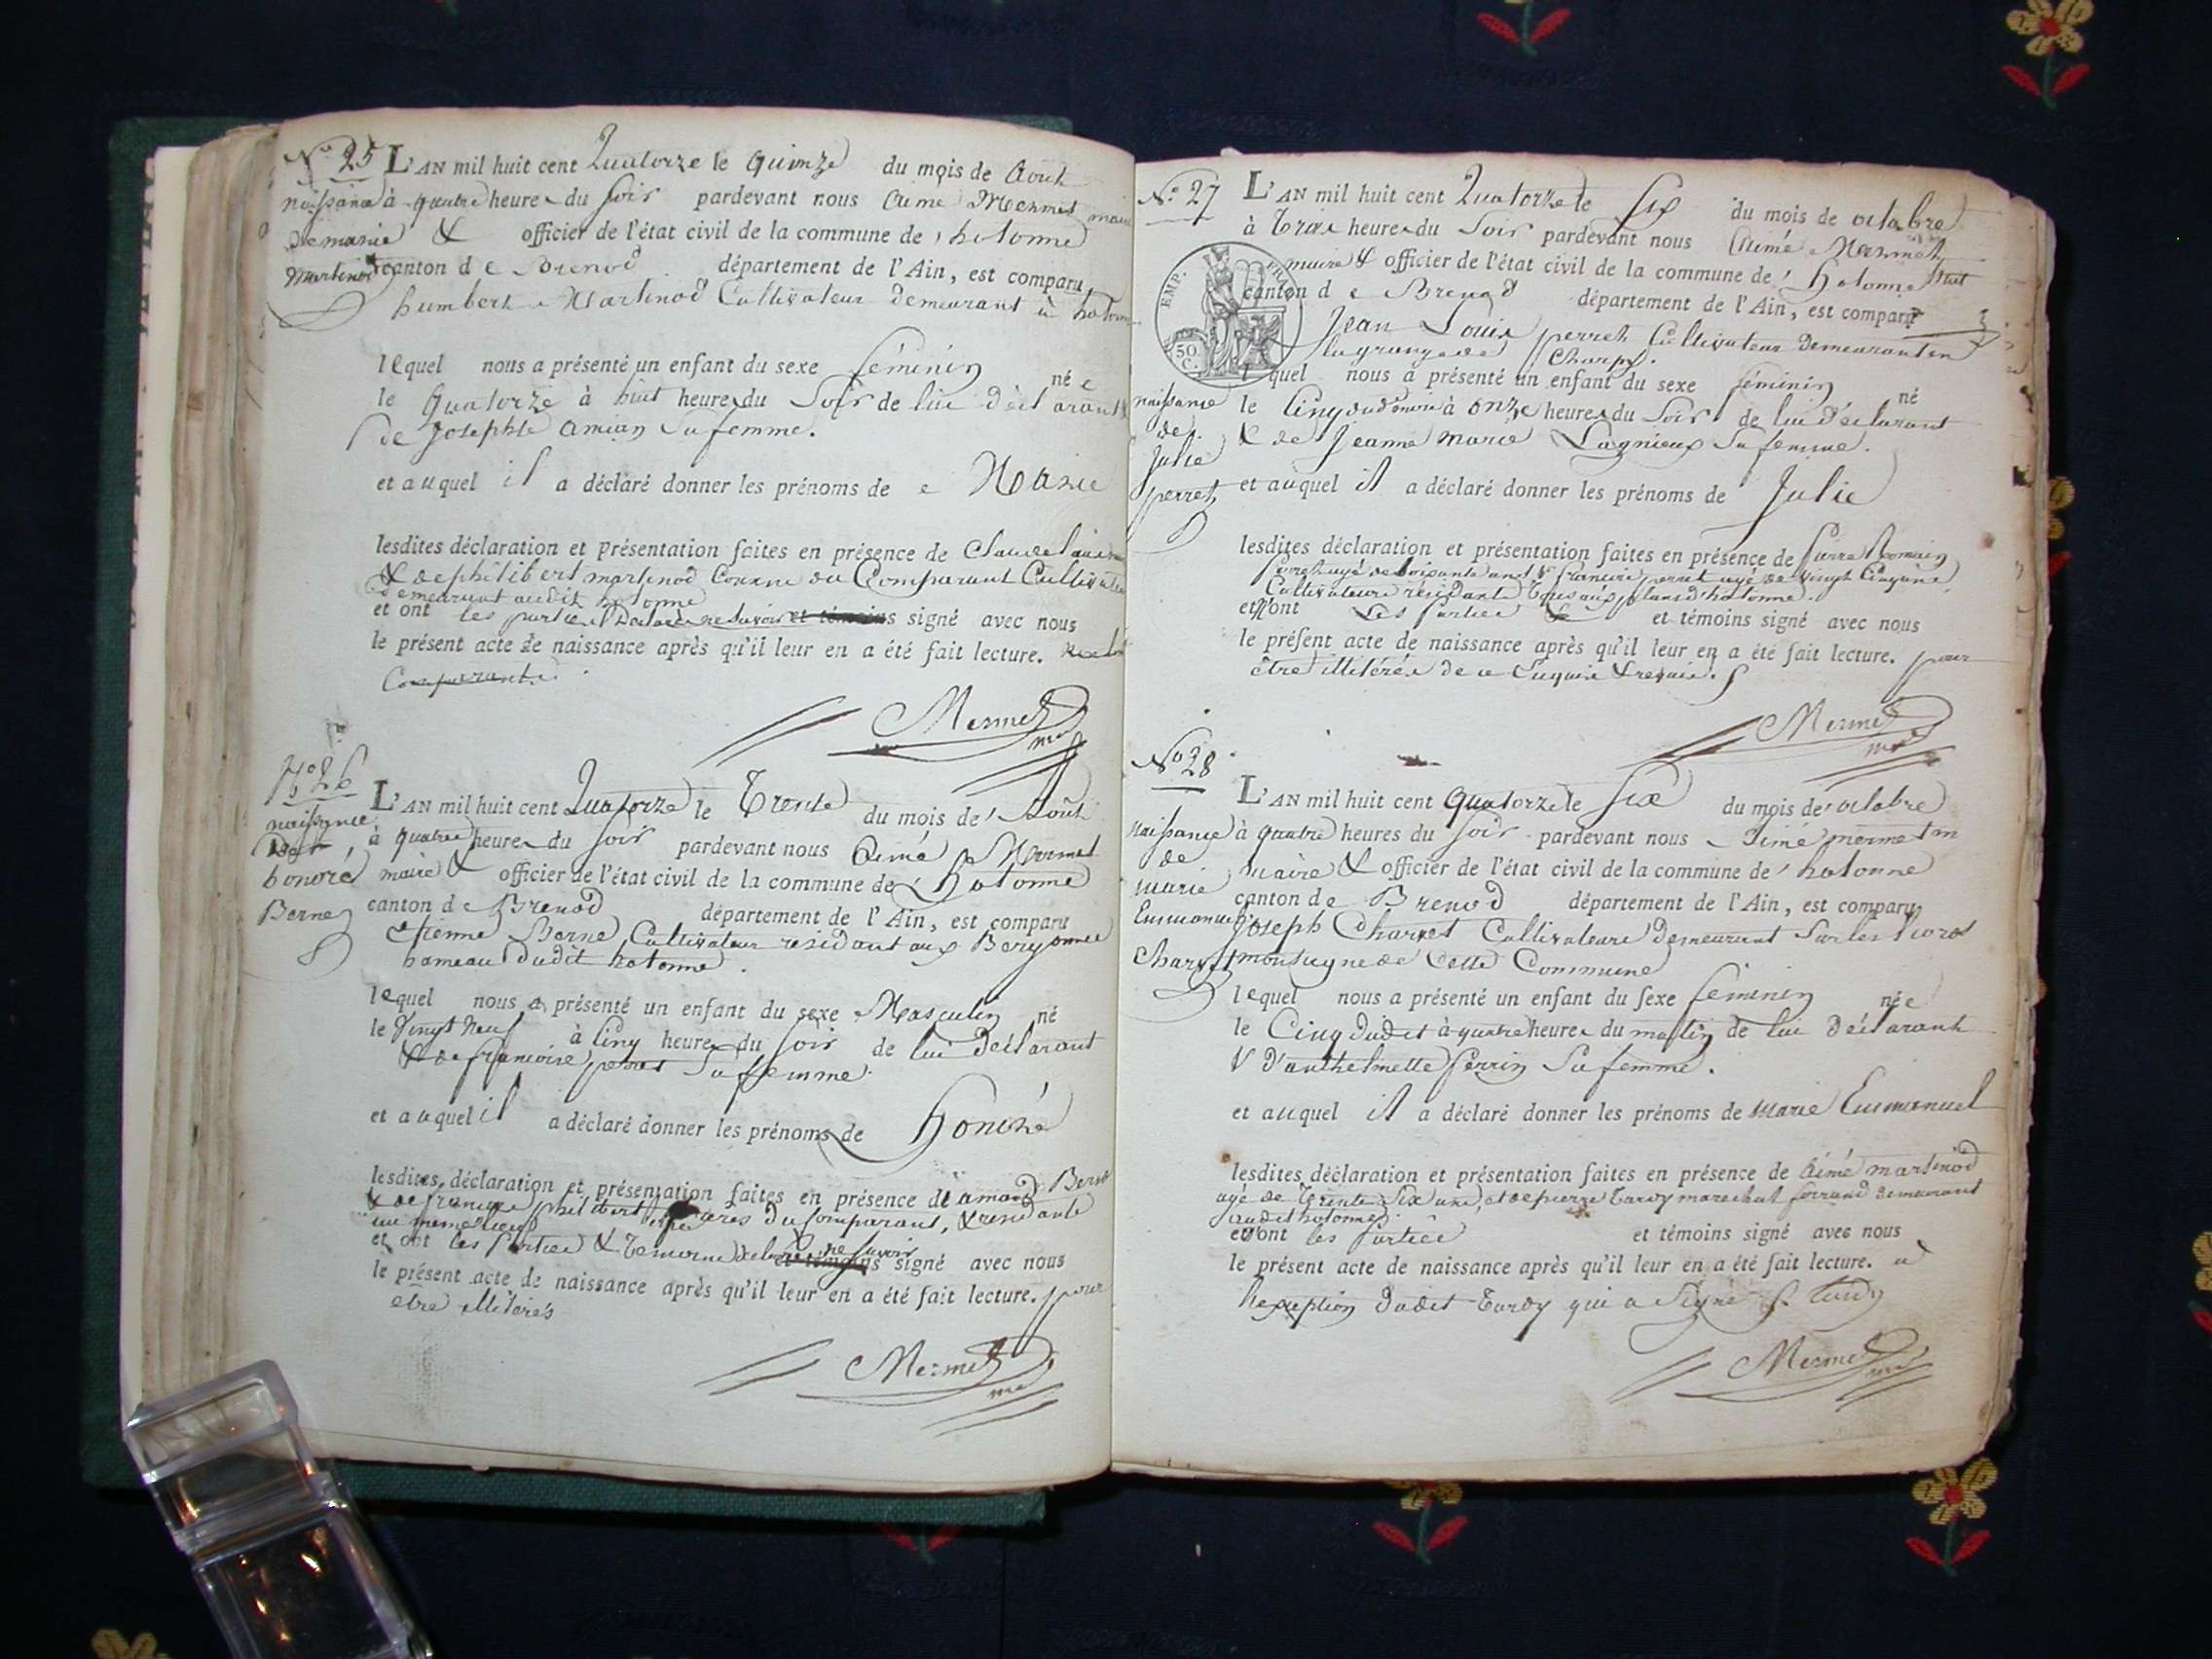 N.o 25
L'AN mil huit cent Quatorze le Quinze du mois de Août
naissance à quatre heures du soir pardevant nous Aimé Mermet maire
de marie & officier de l'état civil de la commune de hotonne
martinod canton de Brenod département de l'Ain, est comparu
humbert Martinod Cultivateur demeurant à hotonne
lequel nous a présenté un enfant du sexe féminin née
le Quatorze à huit heures du Soir de lui déclarant
& de Josephte amian Sa femme.
et auquel il a déclaré donner les prénoms de Marie
lesdites déclaration et présentation faites en présence de Claude
& de philibert martinod du Comparant Cultivateurs
demeurant audit hotonne
et ont les parties Déclaré ne savoir et témoins signé avec nous
le présent acte de naissance après qu'il leur en a été fait lecture.
Comparants.
Mermet
N.o 26
L'AN mil huit cent Quatorze le Trente du mois de Août
naissance
à quatre heures du soir pardevant nous Aimé Mermet
honoré maire & officier de l'état civil de la commune de hotonne
Berne canton de Brenod département de l'Ain, est comparu
etienne Berne Cultivateur residant aux Bergonnes
hameau dudit hotonne.
lequel nous a présenté un enfant du sexe Masculin né
le Vingt Neuf à Cinq heures du soir de lui Déclarant
& de francoise perret Sa femme.
et auquel il a déclaré donner les prénoms de Honoré
lesdites déclaration et présentation faites en présence de amand Berne
& de francois philibert freres du Comparant, & residants
au meme lieu
et ont les Parties & Temoins déclaré ne savoir et témoins signé avec nous
le présent acte de naissance après qu'il leur en a été fait lecture. pour
etre illiterés
Mermet
N.o 27
L'AN mil huit cent Quatorze le Six du mois de octobre
à Trois heures du Soir pardevant nous Aimé Mermet
maire & officier de l'état civil de la commune de hotonne
EMP. FRA
50. C.
canton de Brenod département de l'Ain, est comparu
Jean Louis perret Cultivateur Demeurant en
la grange de Charpy.
lequel nous a présenté un enfant du sexe féminin né
naissance le Cinq dud. mois à onze heures du Soir de lui déclarant
de & de Jeanne marie Lagnieux Sa femme.
Julie
perret et auquel il a déclaré donner les prénoms de Julie
lesdites déclaration et présentation faites en présence de Pierre Romain
perret agé de Soixante ans & francois perret agé de vingt Cinq ans
Cultivateurs résidants Tous aux plans d'hotonne.
et n'ont Les Parties & et témoins signé avec nous
le présent acte de naissance après qu'il leur en a été fait lecture. pour
être illitérés de ce Enquis & requis.
Mermet
N.o 28
L'AN mil huit cent Quatorze le Six du mois de octobre
naissance à quatre heures du soir pardevant nous Aimé mermet
de maire & officier de l'état civil de la commune de hotonne
marie canton de Brenod département de l'Ain, est comparu
Emmanuel Joseph Charvet Cultivateur Demeurant Sur les
Charvet montagne de Cette Commune
lequel nous a présenté un enfant du sexe féminin née
le Cinq dudit à quatre heures du matin de lui Déclarant
& d'anthelmette Perrin Sa femme.
et auquel il a déclaré donner les prénoms de Marie Emmanuel
lesdites déclaration et présentation faites en présence de Aimé martinod
agé de Trente Six ans, et de pierre Tardy marechal ferrand demeurant
audit hotonne
et n'ont les Parties et témoins signé avec nous
le présent acte de naissance après qu'il leur en a été fait lecture. à
l'exeption dudit Tardy qui a Signé P. Tardy
Mermet